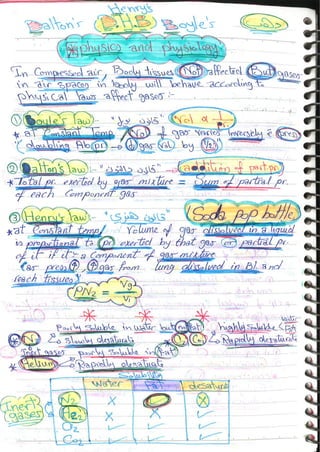 Henry's
Dalton's D.H.B Boyle's
physics and physiology
In Compressed air, Body tissues Not affected But gases
in air spaces in body will behave according to
physical laws affect gases:-
① Boyle's law:- "قانون بويل" Vol α 1/
* at Constant temp, Vol of gas varies inversely e pres
doubling Ab pr → gas vol by 1/2
② Dalton's law:- "قانون دالتون" → addition of part. pr.
* Total pr. exerted by gas mixture = Sum of partial pr.
of each Component gas
③ Henry's law:- "قانون هنري" Soda pop bottle
* at Constant temp, Volume of gas dissolved in a liquid
is proportional to pr exerted by that gas or partial pr.
of it if it = a Component of gas mixture
(as pres ↑ ↑ gas from lung dissolved in Bl. and
reach tissues)
PN₂ = Vg/Vi
Poorly soluble in water but in fat highly soluble
* N₂ → Slowly desaturate O₂, CO₂ → Rapidly desaturate
Inert gases → poorly soluble in fat
* Helium → Rapidly desaturate
Solubility
Water Fat desaturat
Inert gases N₂ X X
He₂ X X ✓
O₂ ✓ ✓ ✓
CO₂ ✓ ✓ ✓